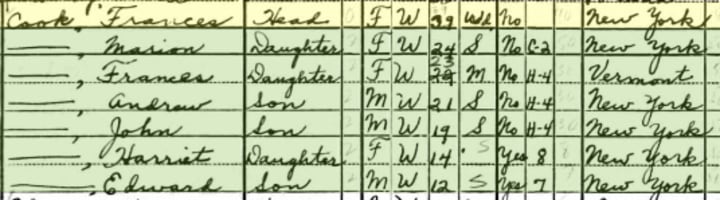 Cook, Frances Head F W 39 Wd No New York
——, Marion Daughter F W 24 S No C-2 New York
——, Frances Daughter F W 23 M No H-4 Vermont
——, Andrew Son M W 21 S No H-4 New York
——, John Son M W 19 S No H-4 New York
——, Harriet Daughter F W 14 S Yes 8 New York
——, Edward Son M W 12 S Yes 7 New York